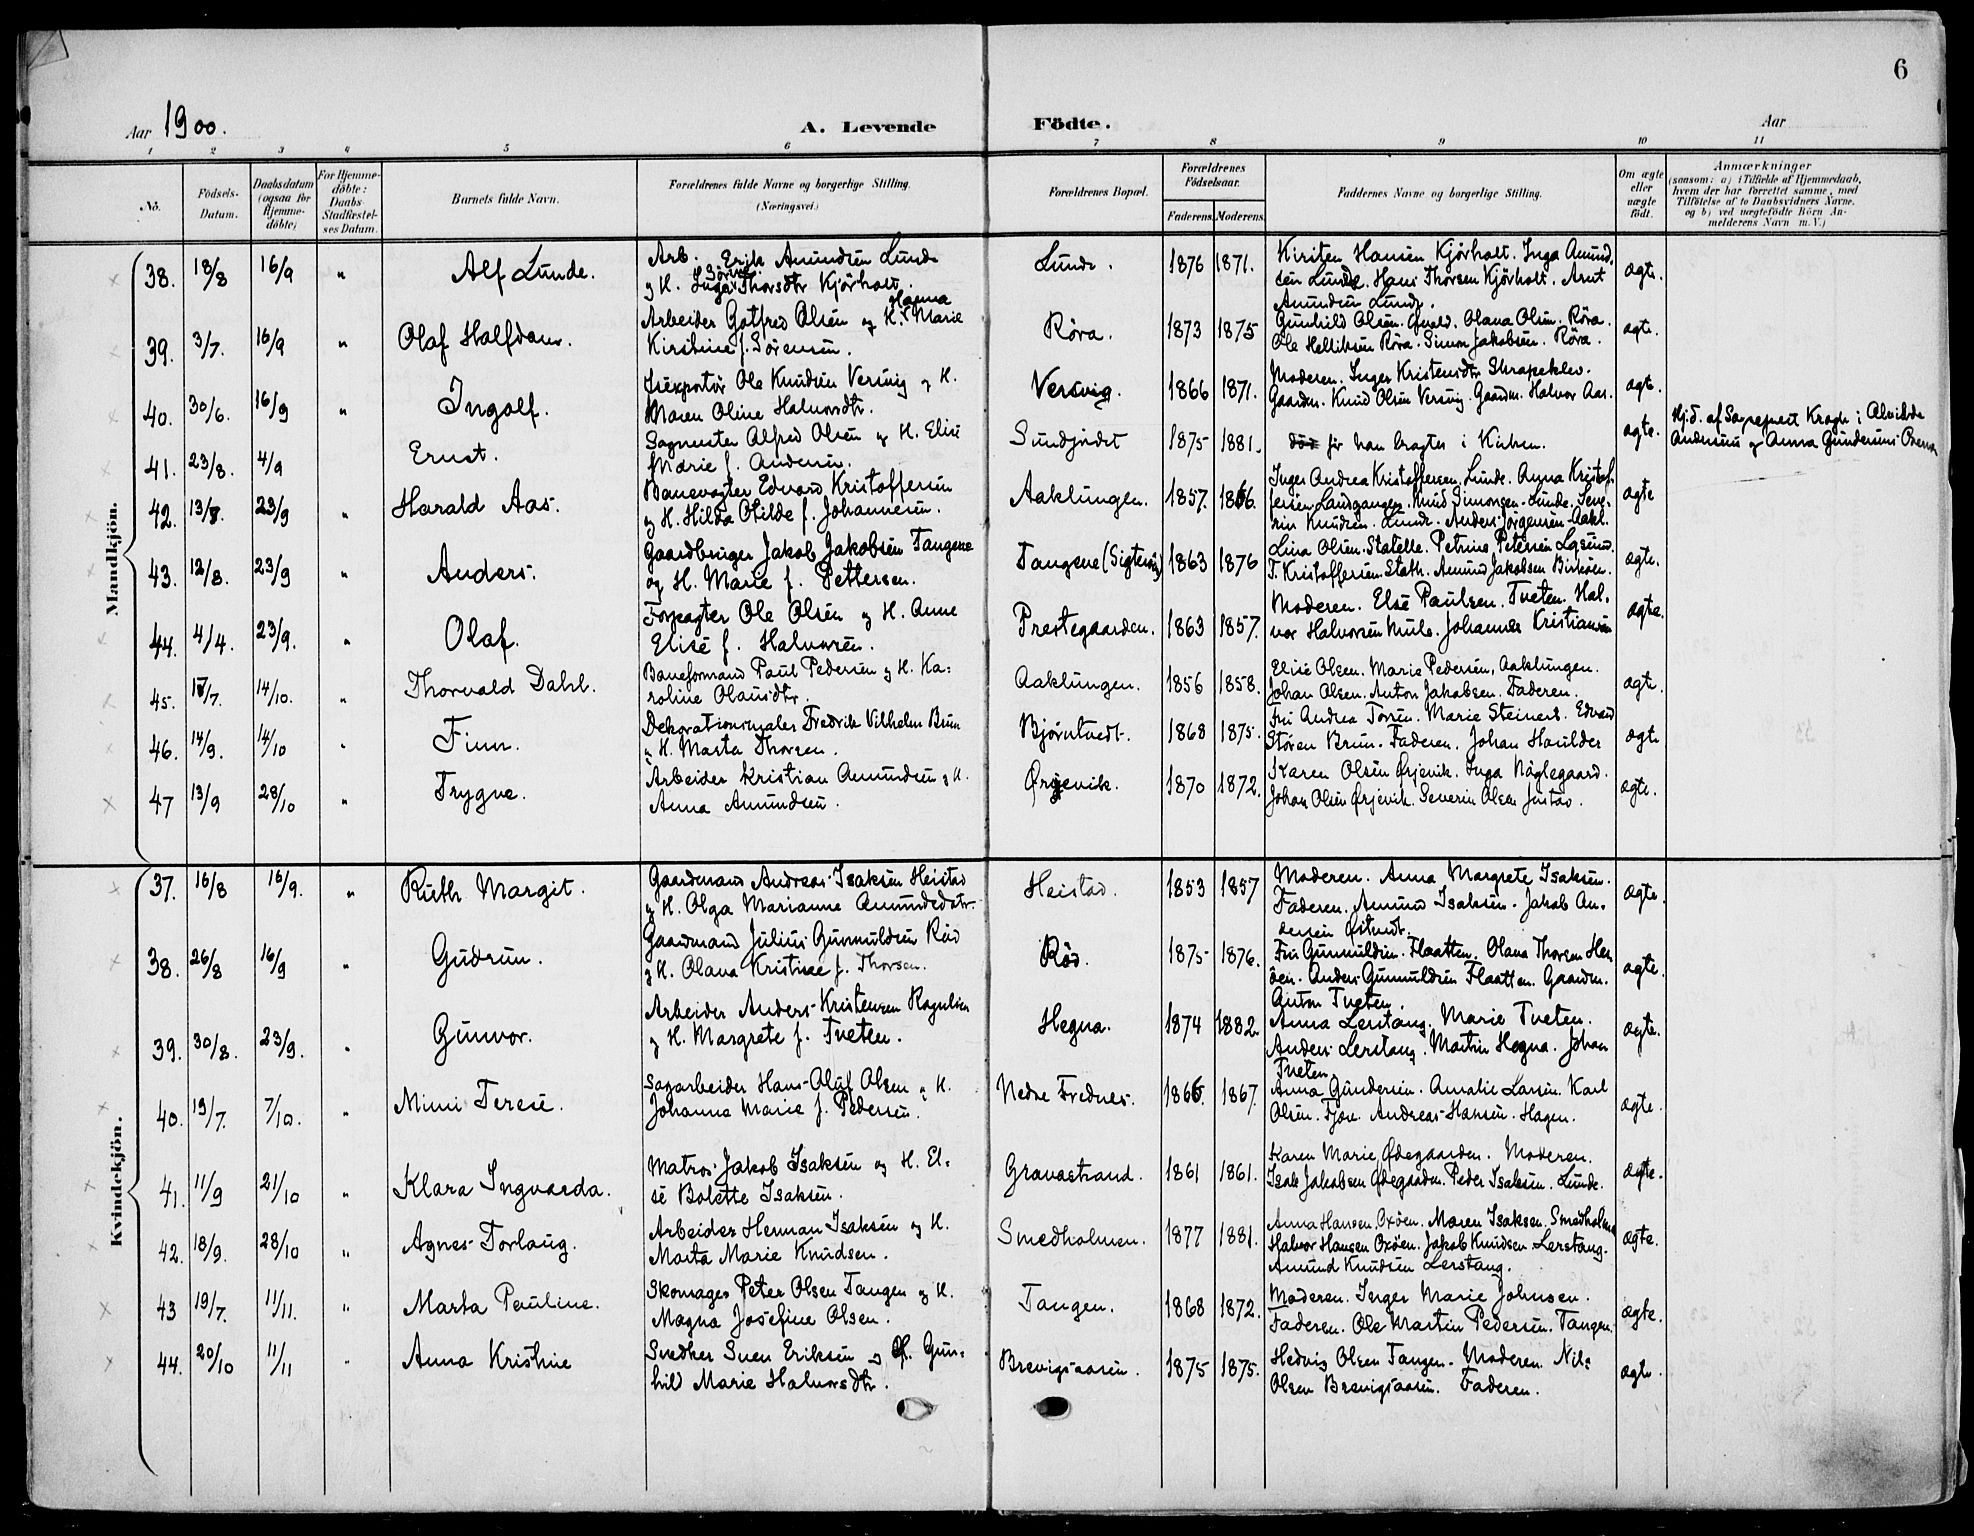 6
Aar 1900. A. Levende Födte. Aar
1 2 3 4 5 6 7 8 9 10 11
No. Födsels-Datum. Daabsdatum (ogsaa for Hjemme-döbte) For Hjemme-döbte: Daabs Stadfæstel-ses Datum. Barnets fulde Navn. Forældrenes fulde Navne og borgerlige Stilling. (Næringsvei.) Forældrenes Bopæl. Forældrenes Födselsaar. Faderens. Moderens. Faddernes Navne og borgerlige Stilling. Om ægte eller uægte födt. Anmærkninger
(saasom: a) i Tilfælde af Hjemmedaab,
hvem der har forrettet samme, med
Tilföielse af to Daabsvidners Navne.
og b) ved uægtefödte Börn An-
melderens Navn m.V.)
Mandkjön.
38. 18/8 16/9 " Alf Lunde. Arb. Erik Amundsen Lunde
og H. Inga Thorsdtr Kjörholt. Lunde. 1876 1871. Kirsten Hansen Kjörholt. Inga Amund-
sen Lunde. Hans Thorsen Kjörholt. Arnt
Amundsen Lunde. ægte.
39. 3/7. 16/9 " Olaf Halfdan. Arbeider Gotfred Olsen og H. Hanna Marie
Kirstine f. Sörensen. Röra. 1873 1875 Gunhild Olsen. Olava Olsen. Röra.
Ole Helliksen Röra. Simon Jakobsen. Röra. ægte.
40. 30/6. 16/9 " Ingolf. Isexportör Ole Knudsen Versvig og H.
Maren Oline Halvorsdtr. Versvig. 1866 1871. Moderen. Inger Kristensdtr Skrapeklev.
Gaardm. Knud Olsen Versvig. Gaardm. Halvor Aas. ægte.
41. 23/8. 4/9 Ernst. Sagmester Alfred Olsen og H. Elise
Marie f. Andersen. Sundjordet 1875 1881. död för han bragtes i Kirken. ægte. Hj.d. af Sogneprest Krogh i Alvilde
Andersens og Anna Gundersens
42. 13/8. 23/9 " Harald Aas. Banevogter Edvard Kristoffersen
og H. Hilda Otilde f. Johannesen. Aaklungen. 1857. 1866. Inger Andrea Kristoffersen. Lunde. Anna Kristof-
fersen Landgangen. Knud Simonsen. Lunde. Seve-
rin Knudsen. Lunde. Anders Jörgensen Aakl. ægte
43. 12/8. 23/9 " Anders. Gaardbruger Jakob Jakobsen Tangene
og H. Marie f. Pettersen. Tangene (Sigtesö) 1863 1876 Lina Olsen. Statelle. Petrine Petersen Lgsund.
T. Kristoffersen Stath. Amund Jakobsen Birköen. ægte.
44. 4/4. 23/9. " Olaf. Forpagter Ole Olsen og H. Anne
Elise f. Halvorsen. Prestegaarden. 1863 1857. Moderen. Else Paulsen. Tveten. Hal-
vor Halvorsen Mule. Johannes Kristiansen ægte.
45. 17/7. 14/10. " Thorvald Dahl. Baneformand Paul Pedersen og H. Ka-
roline Olausdtr. Aaklungen. 1856 1858. Elise Olsen. Marie Pedersen, Aaklungen.
Johan Olsen. Anton Jakobsen. Faderen. ægte.
46. 14/9. 14/10 " Finn. Dekorationsmaler Fredrik Vilhelm Brun
og H. Marta Thorsen. Bjørntvedt. 1868 1875. Fru Andrea Torsen. Marie Steinert. Edvard
Stören Brun. Faderen. Johan Houlder ægte
47 13/9 28/10 " Trygve. Arbeider Kristian Amundsen og H.
Anna Amundsen. Ørjevik. 1870 1872. Karen Olsen Ørjevik. Inga Nöglegaard.
Johan Olsen Ørjevik. Severin Olsen Justad. ægte.
Kvindekjön.
37. 16/8 16/9. " Ruth Margit. Gaardmand Andreas Isaksen Heistad
og H. Olga Marianne Amundsdatr. Heistad. 1853 1857 Moderen. Anna Margrete Isaksen.
Faderen. Amund Isaksen. Jakob An-
dersen Östvedt. ægte.
38. 26/8 16/9 " Gudrun. Gaardmand Julius Gunnuldsen Röd
og H. Olava Kristine f. Thorsen. Röd. 1875 1876. Fru Gunnuldsen. Flaatten. Olava Thorsen Her-
öen. Anders Gunnuldsen Flaatten. Gaardm.
Anton Tveten. ægte.
39. 30/8. 23/9. " Gunvor. Arbeider Anders Kristensen Rognlien
og H. Margrete f. Tveten. Hegna. 1874 1882. Anna Lerstang. Marie Tveten.
Anders Lerstang. Martin Hegna. Johan
Tveten. ægte.
40. 19/7. 7/10. " Mimi Terese. Sagarbeider Hans Oluf Olsen og H.
Johanna Marie f. Pedersen. Nedre Frednes. 1866. 1867. Anna Gundersen. Amalie Larsen. Karl
Olsen. Fjære. Andreas Hansen. Hagen. ægte.
41. 11/9 21/10 " Klara Ingvarda. Matros Jakob Isaksen og H. El-
se Bolette Isaksen. Gravastrand. 1861 1861. Karen Marie Ødegaarden. Moderen.
Isak Jakobsen Ødegaarden. Peder Isaksen. Lunde. ægte.
42. 18/9. 28/10 " Agnes Torlaug. Arbeider Herman Isaksen og H.
Marta Marie Knudsen. Smedholmen. 1877 1881. Anna Hansen. Oxöen. Maren Isaksen. Smedholmen
Halvor Hansen Oxöen. Jakob Knudsen Lerstang.
Amund Knudsen Lerstang. ægte.
43 19/7. 11/11. " Marta Pauline. Skomager Peter Olsen Tangen og H.
Magna Josefine Olsen. Tangen. 1868 1872. Moderen. Inger Marie Johnsen.
Faderen. Ole Martin Pedersen. Tangen. ægte.
44. 20/10 11/11 " Anna Kristine Snedker Sven Eriksen og H. Gun-
hild Marie Halvorsdtr. Brevigsaasen. 1875 1875. Hedvig Olsen Tangen. Moderen. Nils
Olsen Brevigsaasen. Faderen. ægte.